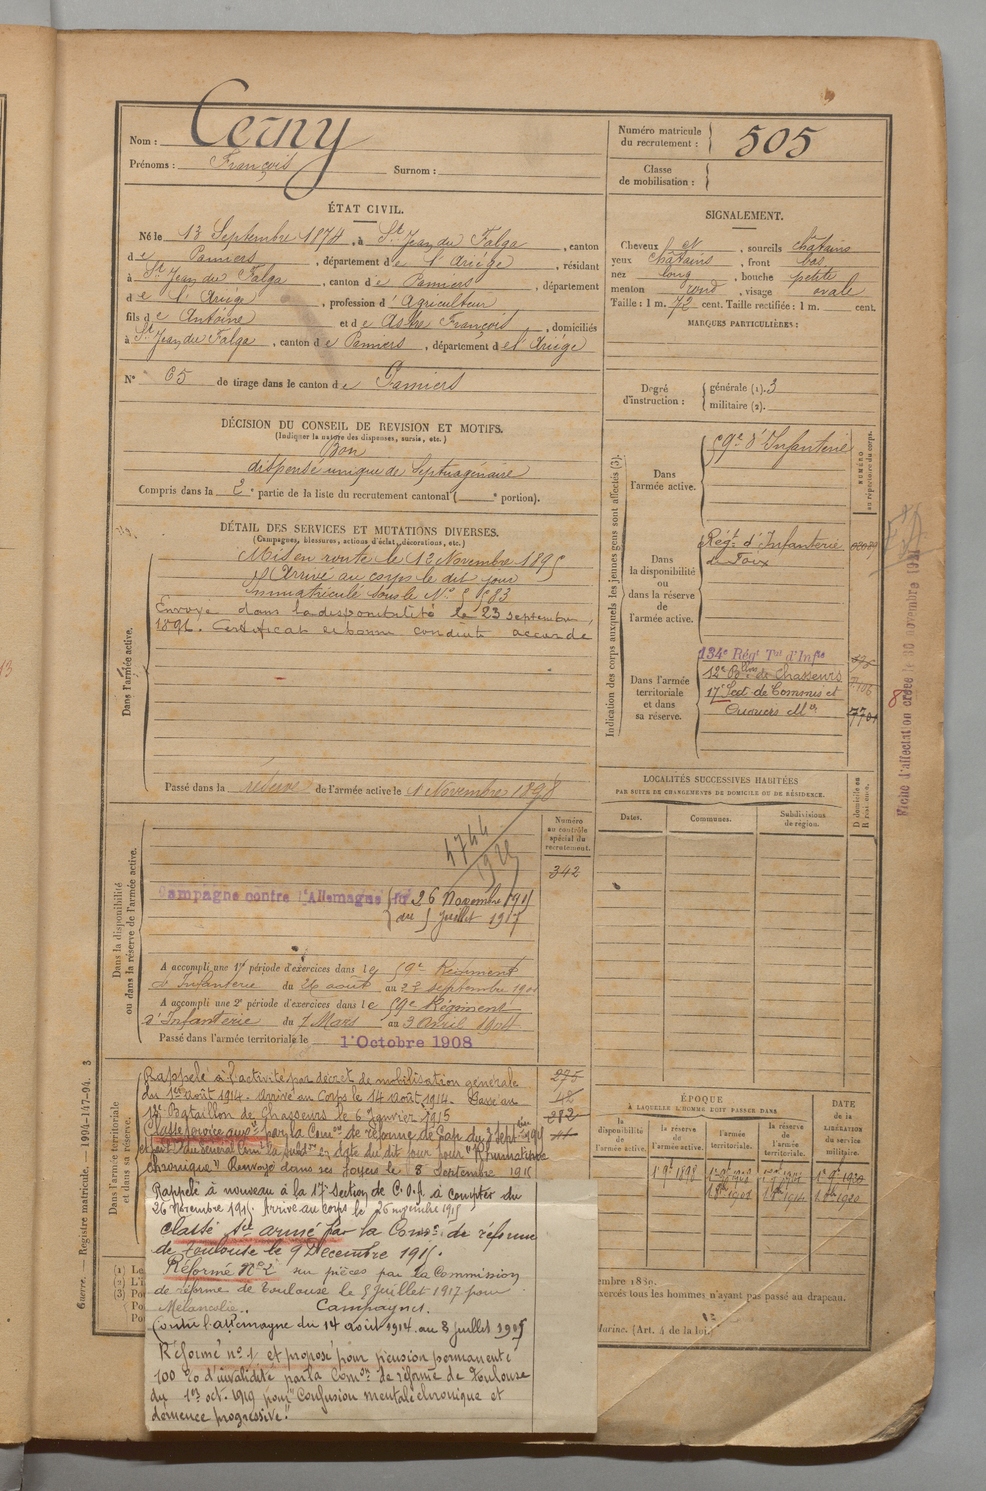 Nom : Cerny
Prénoms : François Surnom :
Numéro matricule du recrutement : 505
Classe de mobilisation :
ÉTAT CIVIL.
Né le 13 Septembre 1874, à St Jean du Falga, canton
de Pamiers, département de l'Ariége, résidant
à St Jean du Falga, canton de Pamiers, département
de l'Ariége, profession d'Agriculteur
fils de Antoine et de Astre François, domiciliés
à St Jean du Falga, canton de Pamiers, département de l'Ariége
N° 65 de tirage dans le canton de Pamiers
SIGNALEMENT.
Cheveux et, sourcils chatains
yeux chatains, front bas
nez long, bouche petite
menton rond, visage ovale
Taille : 1 m. 72 cent. Taille rectifiée : 1 m. cent.
MARQUES PARTICULIÈRES :
Degré d'instruction : générale (1). 3
militaire (2).
DÉCISION DU CONSEIL DE REVISION ET MOTIFS.
(Indiquer la nature des dispenses, sursis, etc.)
Bon
dispensé unique de Septuagénaire
Compris dans la 2e partie de la liste du recrutement cantonal ( e portion).
DÉTAIL DES SERVICES ET MUTATIONS DIVERSES.
(Campagnes, blessures, actions d'éclat, décorations, etc.)
Dans l'armée active.
Mis en route le 12 Novembre 1895
Arrivé au corps le dit jour
Immatriculé sous le N°
Envoyé dans la disponibilité le 23 septembre
1896. Certificat de bonne conduite accordé
Passé dans la réserve de l'armée active le 1 Novembre 1898
Indication des corps auxquels les jeunes gens sont affectés (3).
NUMÉRO au répertoire du corps.
Dans l'armée active.
59e d'Infanterie
Dans la disponibilité ou dans la réserve de l'armée active.
Régt. d'Infanterie
de Foix
Dans l'armée territoriale et dans sa réserve.
134e Régt Tal d'Infie
12e Bllon de Chasseurs
17e Sect. de Commis et
Ouvriers Mres
Fiche d'affectation créée le 30 novembre 19
LOCALITÉS SUCCESSIVES HABITÉES
PAR SUITE DE CHANGEMENTS DE DOMICILE OU DE RÉSIDENCE.
Dates. Communes. Subdivisions de région. D domicile ou R résidence.
Dans la disponibilité ou dans la réserve de l'armée active.
Numéro au contrôle spécial du recrutement.
342
4744
1925
Campagne contre l'Allemagne du 26 Novembre 1915
au 5 Juillet 1917
A accompli une 1re période d'exercices dans le 59e Régiment
d'Infanterie du 26 août au 22 septembre 190
A accompli une 2e période d'exercices dans le 59e Régiment
d'Infanterie du 7 Mars au 3 Avril 1904
Passé dans l'armée territoriale le 1er Octobre 1908
Dans l'armée territoriale et dans sa réserve.
Rappelé à l'activité par décret de mobilisation générale
du 1er août 1914. Arrivé au Corps le 14 août 1914. Passé au
12e Bataillon de Chasseurs le 6 Janvier 1915
Classé service auxre par la Comon de réforme de Gap du 3 septbre 1915
en date du dit jour pour "Rhumatisme
chronique" Renvoyé dans ses foyers le 8 Septembre 1915
Rappelé à nouveau à la 17e Section de C.O.A à compter du
26 Novembre 1915 Arrivé au corps le 26 novembre 1915
classé sce armé par la Comon de réforme
de Toulouse le 9 Décembre 1915.
Réformé N° 2 sur pièces par la Commission
de réforme de Toulouse le 5 Juillet 1917 pour
Mélancolie. Campagnes.
Contre l'allemagne du 14 août 1914 au 8 Juillet 1915
Réformé n° 1 et proposé pour pension permanente
100 % d'invalidité par la Comon de réforme de Toulouse
du 1er oct. 1919 pour "Confusion mentale chronique et
démence progressive."
ÉPOQUE
À LAQUELLE L'HOMME DOIT PASSER DANS
la disponibilité de l'armée active. la réserve de l'armée active. l'armée territoriale. la réserve de l'armée territoriale.
DATE de la LIBÉRATION du service militaire.
embre 1830.
exercés tous les hommes n'ayant pas passé au drapeau.
Marine. (Art. 4 de la loi
Guerre. — Registre matricule. — 1994-147-94. 3